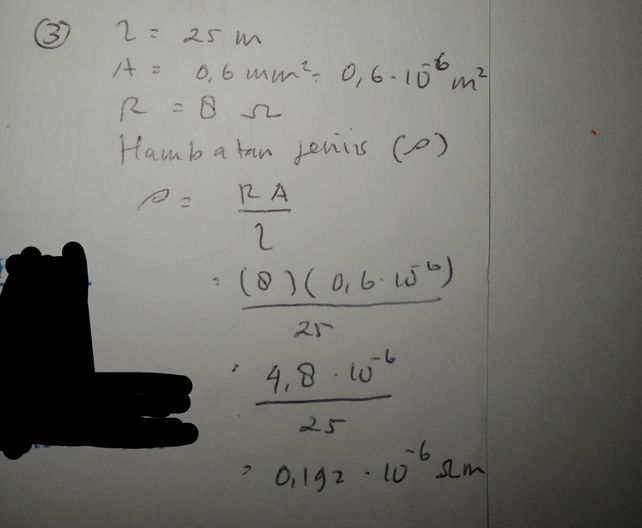 ③ l = 25 m
A = 0,6 mm² = 0,6 · 10⁻⁶ m²
R = 8 Ω
Hambatan jeniis (ρ)
ρ = R A
l
= (8)(0,6 · 10⁻⁶)
25
= 4,8 · 10⁻⁶
25
= 0,192 · 10⁻⁶ Ωm